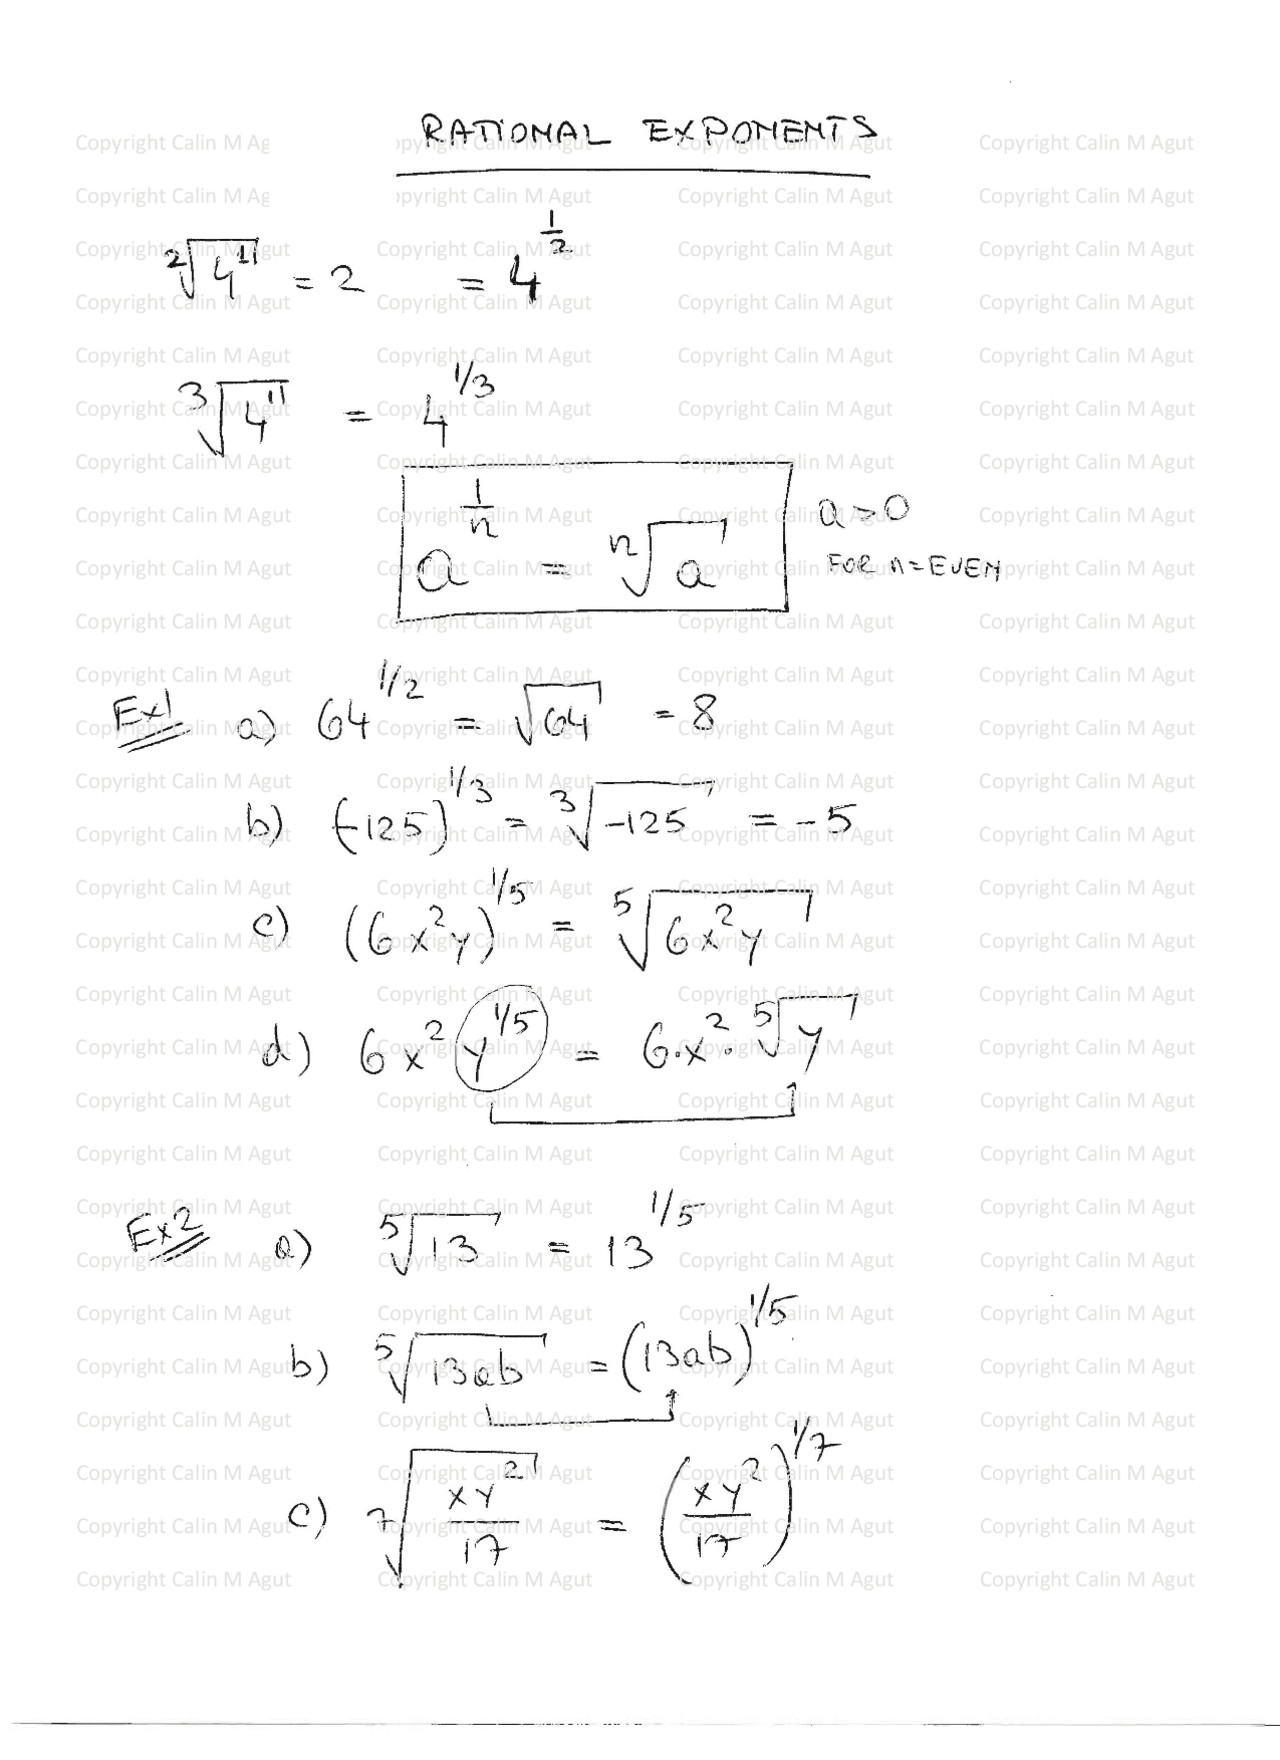 RATIONAL EXPONENTS
²√4¹ = 2 = 4^(1/2)
³√4¹ = 4^(1/3)
a^(1/n) = ⁿ√a a>0
FOR n=EVEN
Ex1 a) 64^(1/2) = √64 = 8
b) (-125)^(1/3) = ³√-125 = -5
c) (6x²y)^(1/5) = ⁵√6x²y
d) 6x²y^(1/5) = 6·x²·⁵√y
Ex2 a) ⁵√13 = 13^(1/5)
b) ⁵√13ab = (13ab)^(1/5)
c) ⁷√(xy²/17) = (xy²/17)^(1/7)
Copyright Calin M Agut